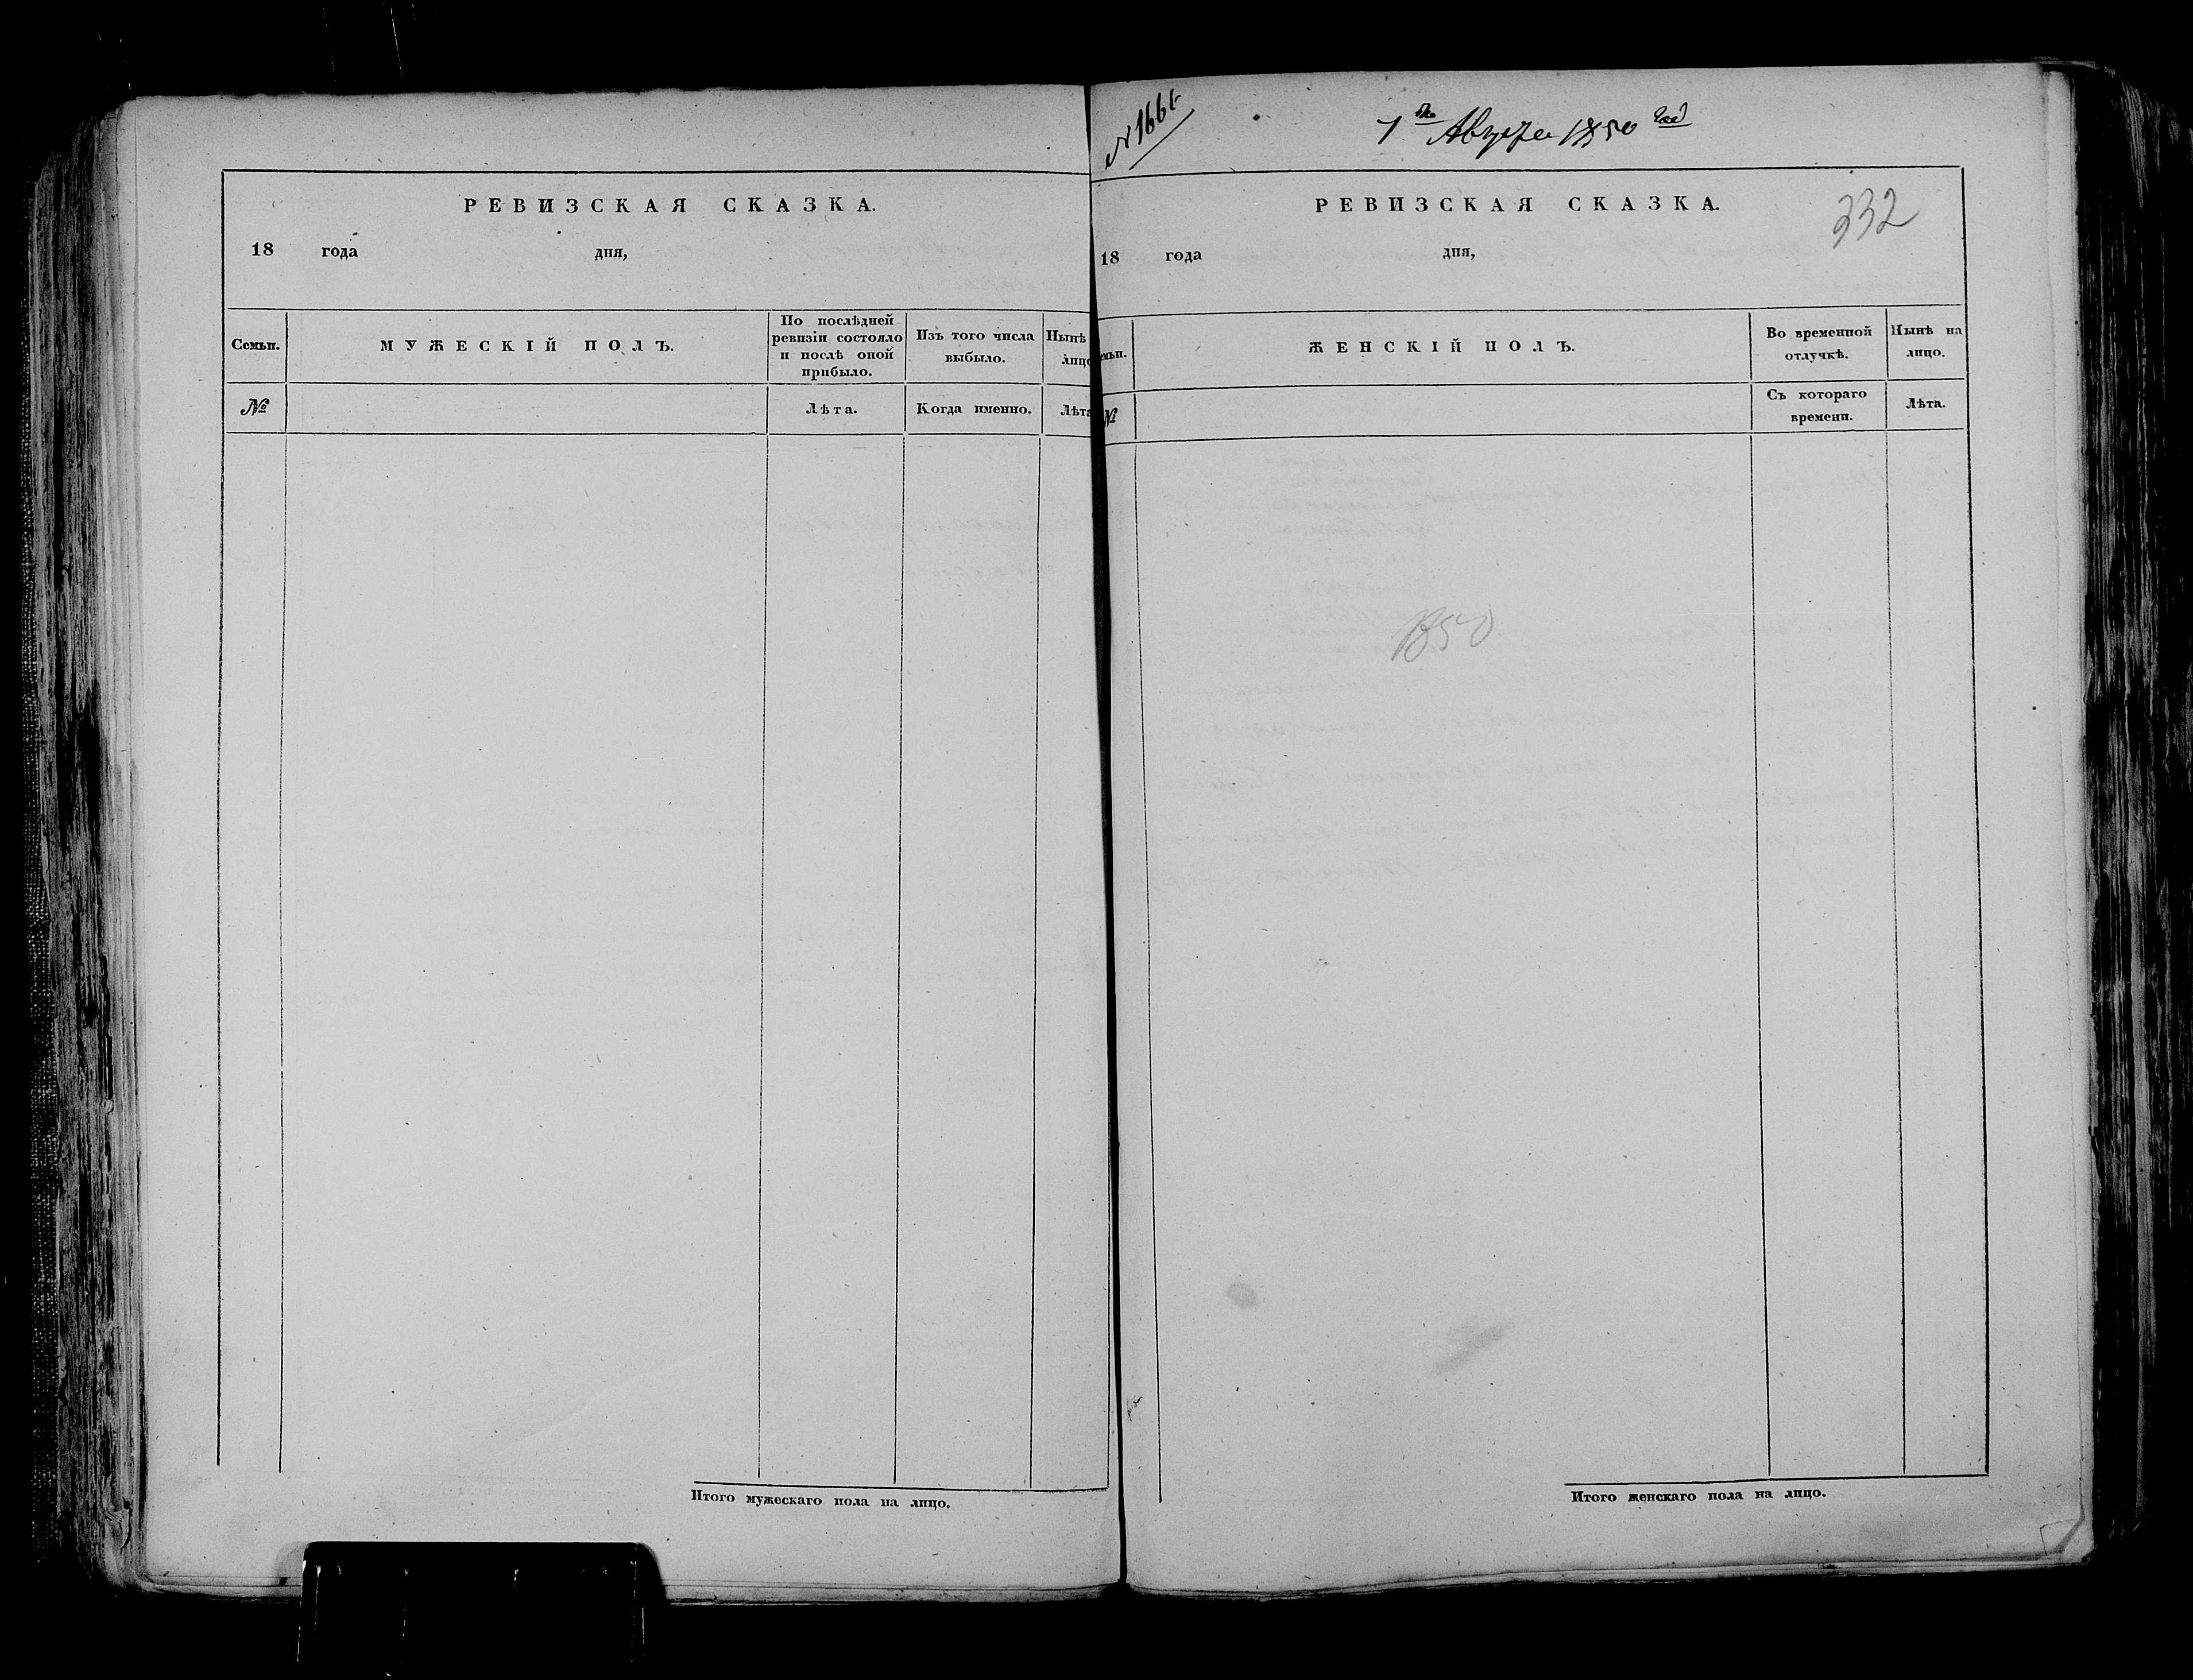 РЕВИЗСКАЯ СКАЗКА.
18 года дня,
Семьи. МУЖЕСКІЙ ПОЛЪ. По послѣдней ревизіи состояло и послѣ оной прибыло. Изъ того числа выбыло. Нынѣ лицо
№ Лѣта. Когда именно. Лѣта
Итого мужескаго пола на лицо.
7го Августа 1850 год
РЕВИЗСКАЯ СКАЗКА.
332
18 года дня,
емьи. ЖЕНСКІЙ ПОЛЪ. Во временной отлучкѣ. Нынѣ на лицо.
№ Съ котораго времени. Лѣта.
1850
Итого женскаго пола на лицо.